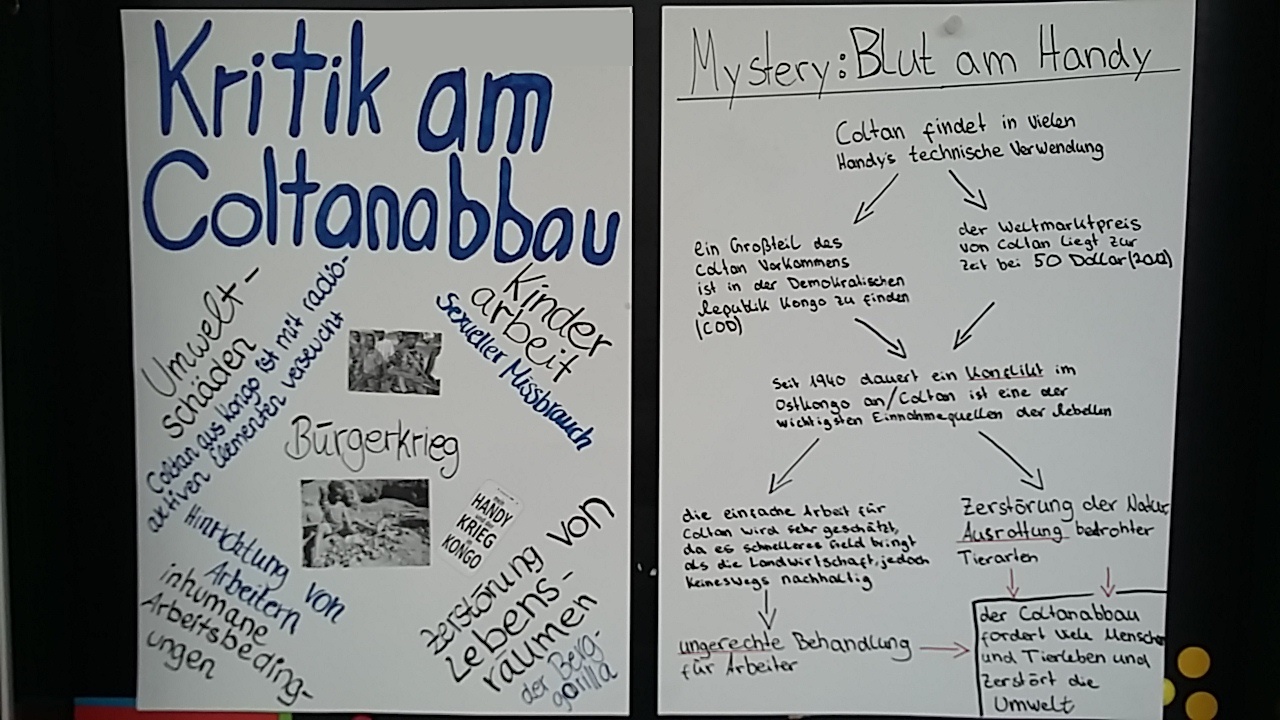 Kritik am
Coltanabbau
Umwelt-
schäden
Coltan aus Kongo ist mit radio-
aktiven Elementen verseucht
Kinder
arbeit
Sexueller Missbrauch
Bürgerkrieg
HANDY
KRIEG
KONGO
Hinrichtung von
Arbeitern
inhumane
Arbeitsbeding-
ungen
Zerstörung von
Lebens-
räumen
der Berg-
gorilla
Mystery: Blut am Handy
Coltan findet in vielen
Handy's technische Verwendung
ein Großteil des
Coltan Vorkommens
ist in der Demokratischen
Republik Kongo zu finden
(COD)
der Weltmarktpreis
von Coltan liegt zur
Zeit bei 50 Dollar
Seit 1940 dauert ein Konflikt im
Ostkongo an/Coltan ist eine der
wichtigsten Einnahmequellen der Rebellen
die einfache Arbeit für
Coltan wird sehr geschätzt,
da es schnelleres Geld bringt
als die Landwirtschaft, jedoch
keineswegs nachhaltig
Zerstörung der Natur
Ausrottung bedrohter
Tierarten
ungerechte Behandlung
für Arbeiter
der Coltanabbau
fordert viele Menschen
und Tierleben und
zerstört die
Umwelt